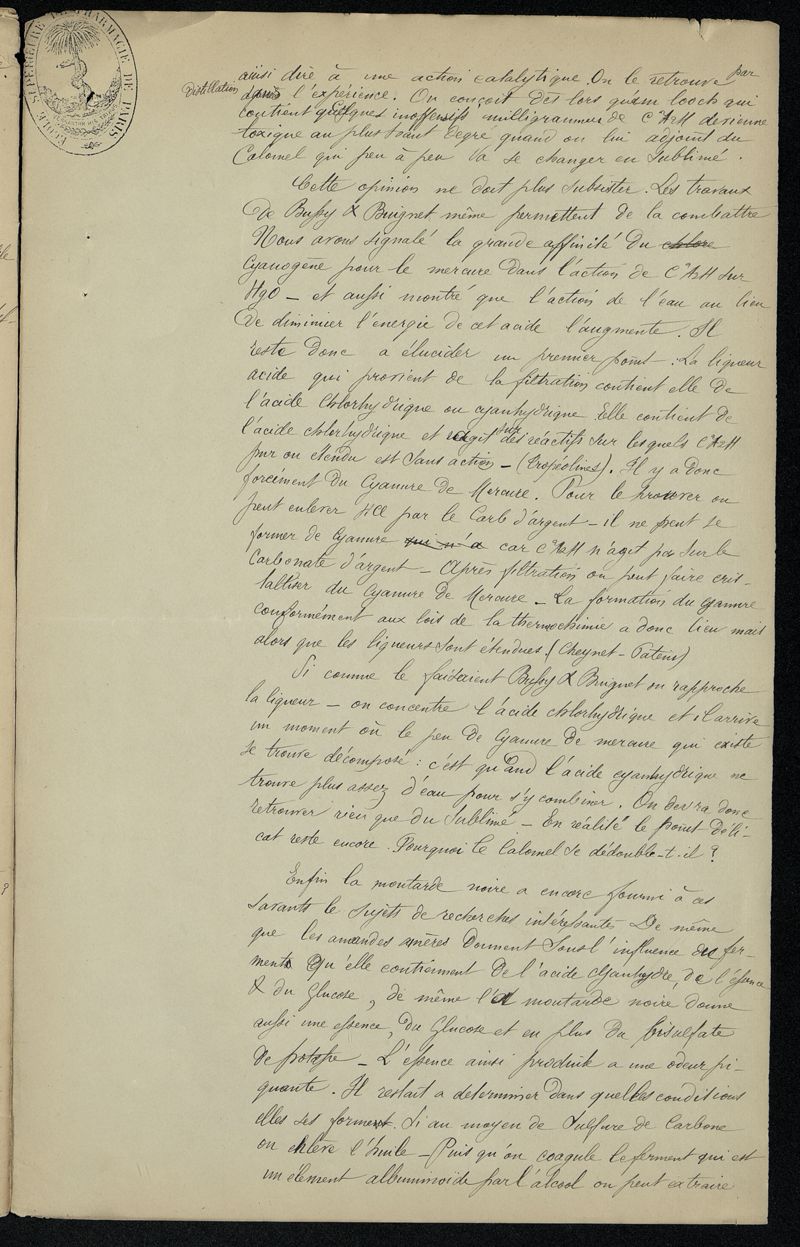 ÉCOLE SUPÉRIEURE DE PHARMACIE DE PARIS
ainsi dire à une action catalytique. On le retrouve par
distillation après l'expérience. On conçoit dès lors qu'un looch qui
contient quelques inoffensifs milligrammes de C²AzH devienne
toxique au plus haut degré quand on lui adjoint du
Calomel qui peu à peu va se changer en Sublimé.
Cette opinion ne doit plus subsister. Les travaux
de Bussy & Buignet même permettent de la combattre
Nous avons signalé la grande affinité du chlore
Cyanogène pour le mercure dans l'action de C²AzH sur
HgO - et aussi montré que l'action de l'eau au lieu
de diminuer l'energie de cet acide l'augmente. Il
reste donc a élucider un premier point. La liqueur
acide qui provient de la filtration contient elle de
l'acide Chlorhydrique ou cyanhydrique. Elle contient de
l'acide chlorhydrique et réagit sur des réactifs sur lesquels C²AzH
pur ou étendu est sans action - (tropeolines). Il y a donc
forcément du Cyanure de Mercure. Pour le prouver on
peut enlever HCl par le Carb d'argent - il ne peut se
former de Cyanure qui n'a car C²AzH n'agit pas sur le
Carbonate d'argent - Après filtration on peut faire cris-
talliser du Cyanure de Mercure - La formation du Cyanure
conformément aux lois de la thermochimie a donc lieu mais
alors que les liqueurs sont étendues. (Cheynet - Patein)
Si comme le faisaient Bussy & Buignet on rapproche
la liqueur - on concentre l'acide chlorhydrique et il arrive
un moment où le peu de Cyanure de mercure qui existe
se trouve décomposé : c'est quand l'acide cyanhydrique ne
trouve plus assez d'eau pour s'y combiner. On devra donc
retrouver rien que du Sublimé - En réalité le point déli-
cat reste encore. Pourquoi le Calomel se dédouble-t-il ?
Enfin la moutarde noire a encore fourni à ces
savants le sujets de recherches intéressantes De même
que les amandes amères donnent sous l'influence du fer-
ments Qu'elle contiennent de l'acide Cyanhydre, de l'essence
& du Glucose, de même la moutarde noire donne
aussi une essence, du Glucose et en plus du bisulfate
de potasse - L'essence ainsi produite a une odeur pi-
quante. Il restait a determiner dans quelles conditions
elles ses forment. Si au moyen de Sulfure de Carbone
on enlève l'huile - Puis qu'on coagule le ferment qui est
un élément albuminoïde par l'alcool on peut extraire